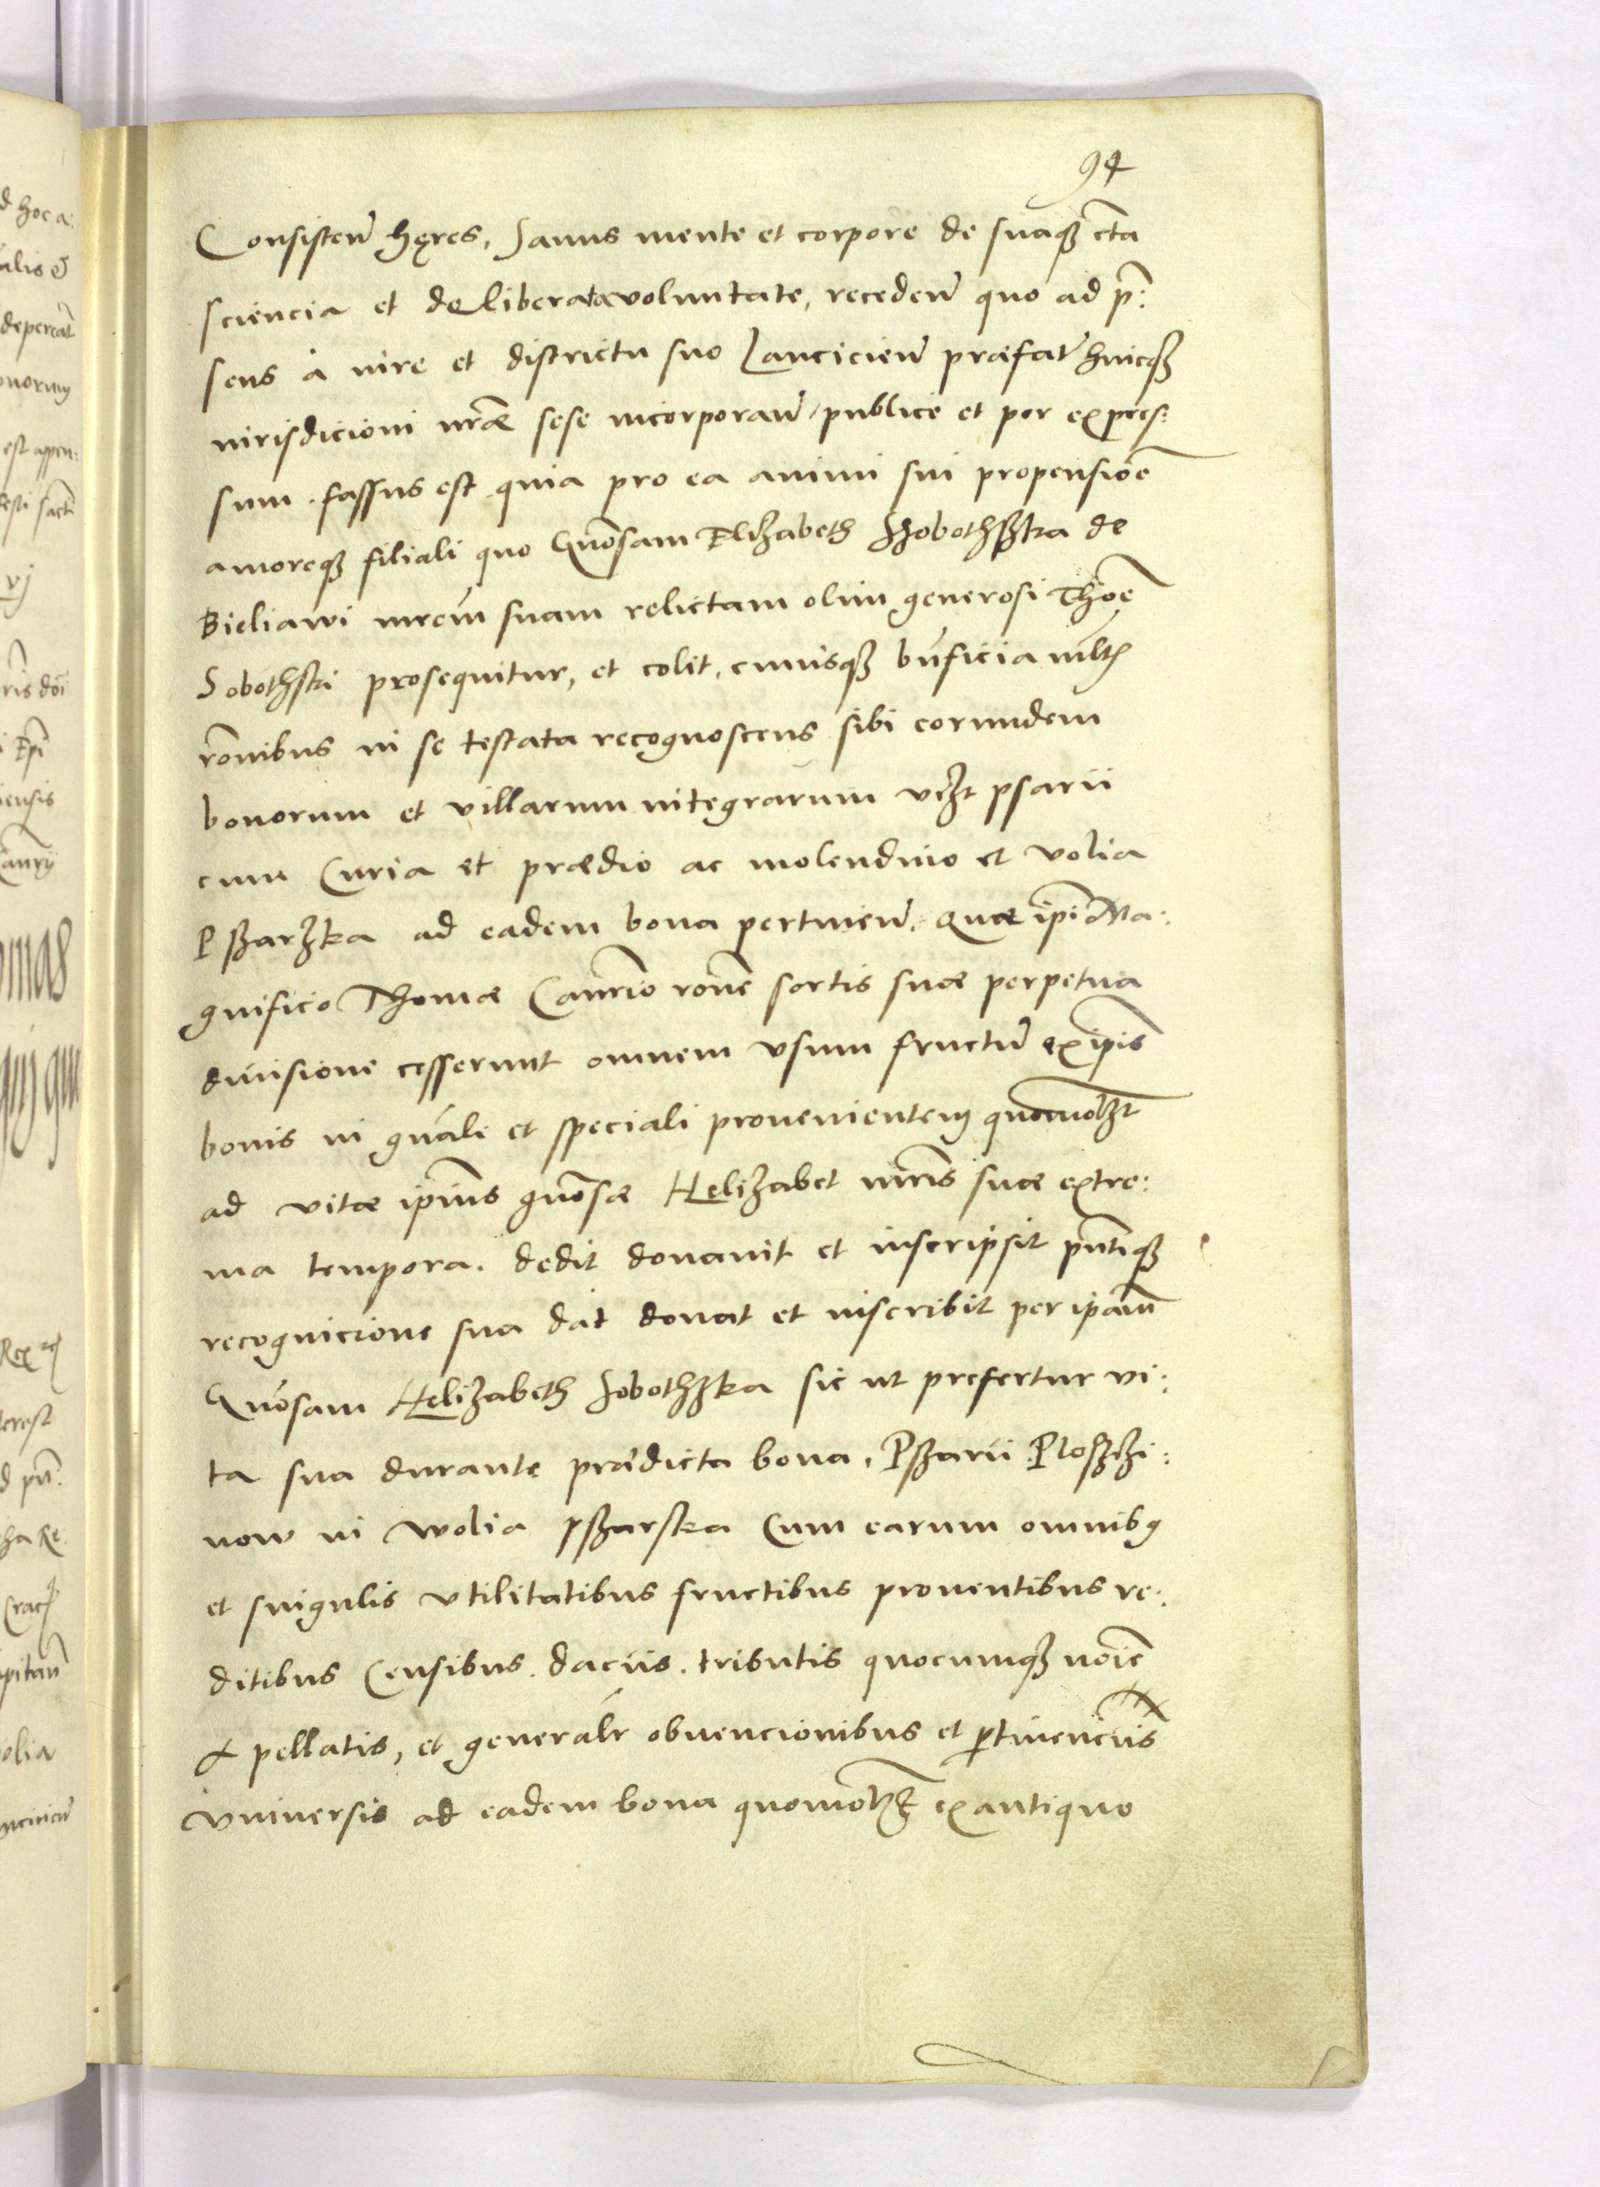 94
Consisteñ hęres, Sanus mente et corpore de suaqꝫ cta
sciencia et deliberata voluntate, recedeñ quo ad p̃:
sens à iure et districtu suo Lancicieñ præfat̃ huicqꝫ
iurisdicioni nr̃æ sese incorporañ / publice et per expres:
sum. fassus est quia pro ea animi sui propensiõe
amoreqꝫ filiali quo Gñosam Elizabeth Szobothszka de
Bieliawi mr̃em suam relictam olim generosi Thoę
Sobothski prosequitur, et colit, cuiusqꝫ bñficia mlt̃
rõnibus in se testata recognoscens sibi eorumdem
bonorum et villarum integrarum vcꝫt psarii
cum Curia et prædio ac molendino et volia
Pszarzka ad eadem bona pertineñ, quæ ip̃i Ma:
gnifico Thomæ Canr̃io rõne sortis suæ perpetua
diuisione cesserunt omnem vsum fructũ ex ip̃is
bonis in gñali et speciali prouenientem quomolꝫt
ad vitæ ip̃ius gñosæ Helizabet mr̃is suæ extre:
ma tempora. dedit donauit et inscripsit pñtiqꝫ
recognicione sua dat donat et inscribit per ip̃am
Gñosam Helizabeth Sobothzka sic ut prefertur vi:
ta sua durante prædicta bona, Pszarii Ploszczi:
now in Wolia pszarska Cum earum omnibꝫ
et singulis vtilitatibus fructibus prouentibus re:
ditibus Censibus. daciis. tributis quocumqꝫ noĩe
appellatis, et generalr̃ obuencionibus et ptinenciis
vniuersis ad eadem bona quomolꝫt ex antiquo